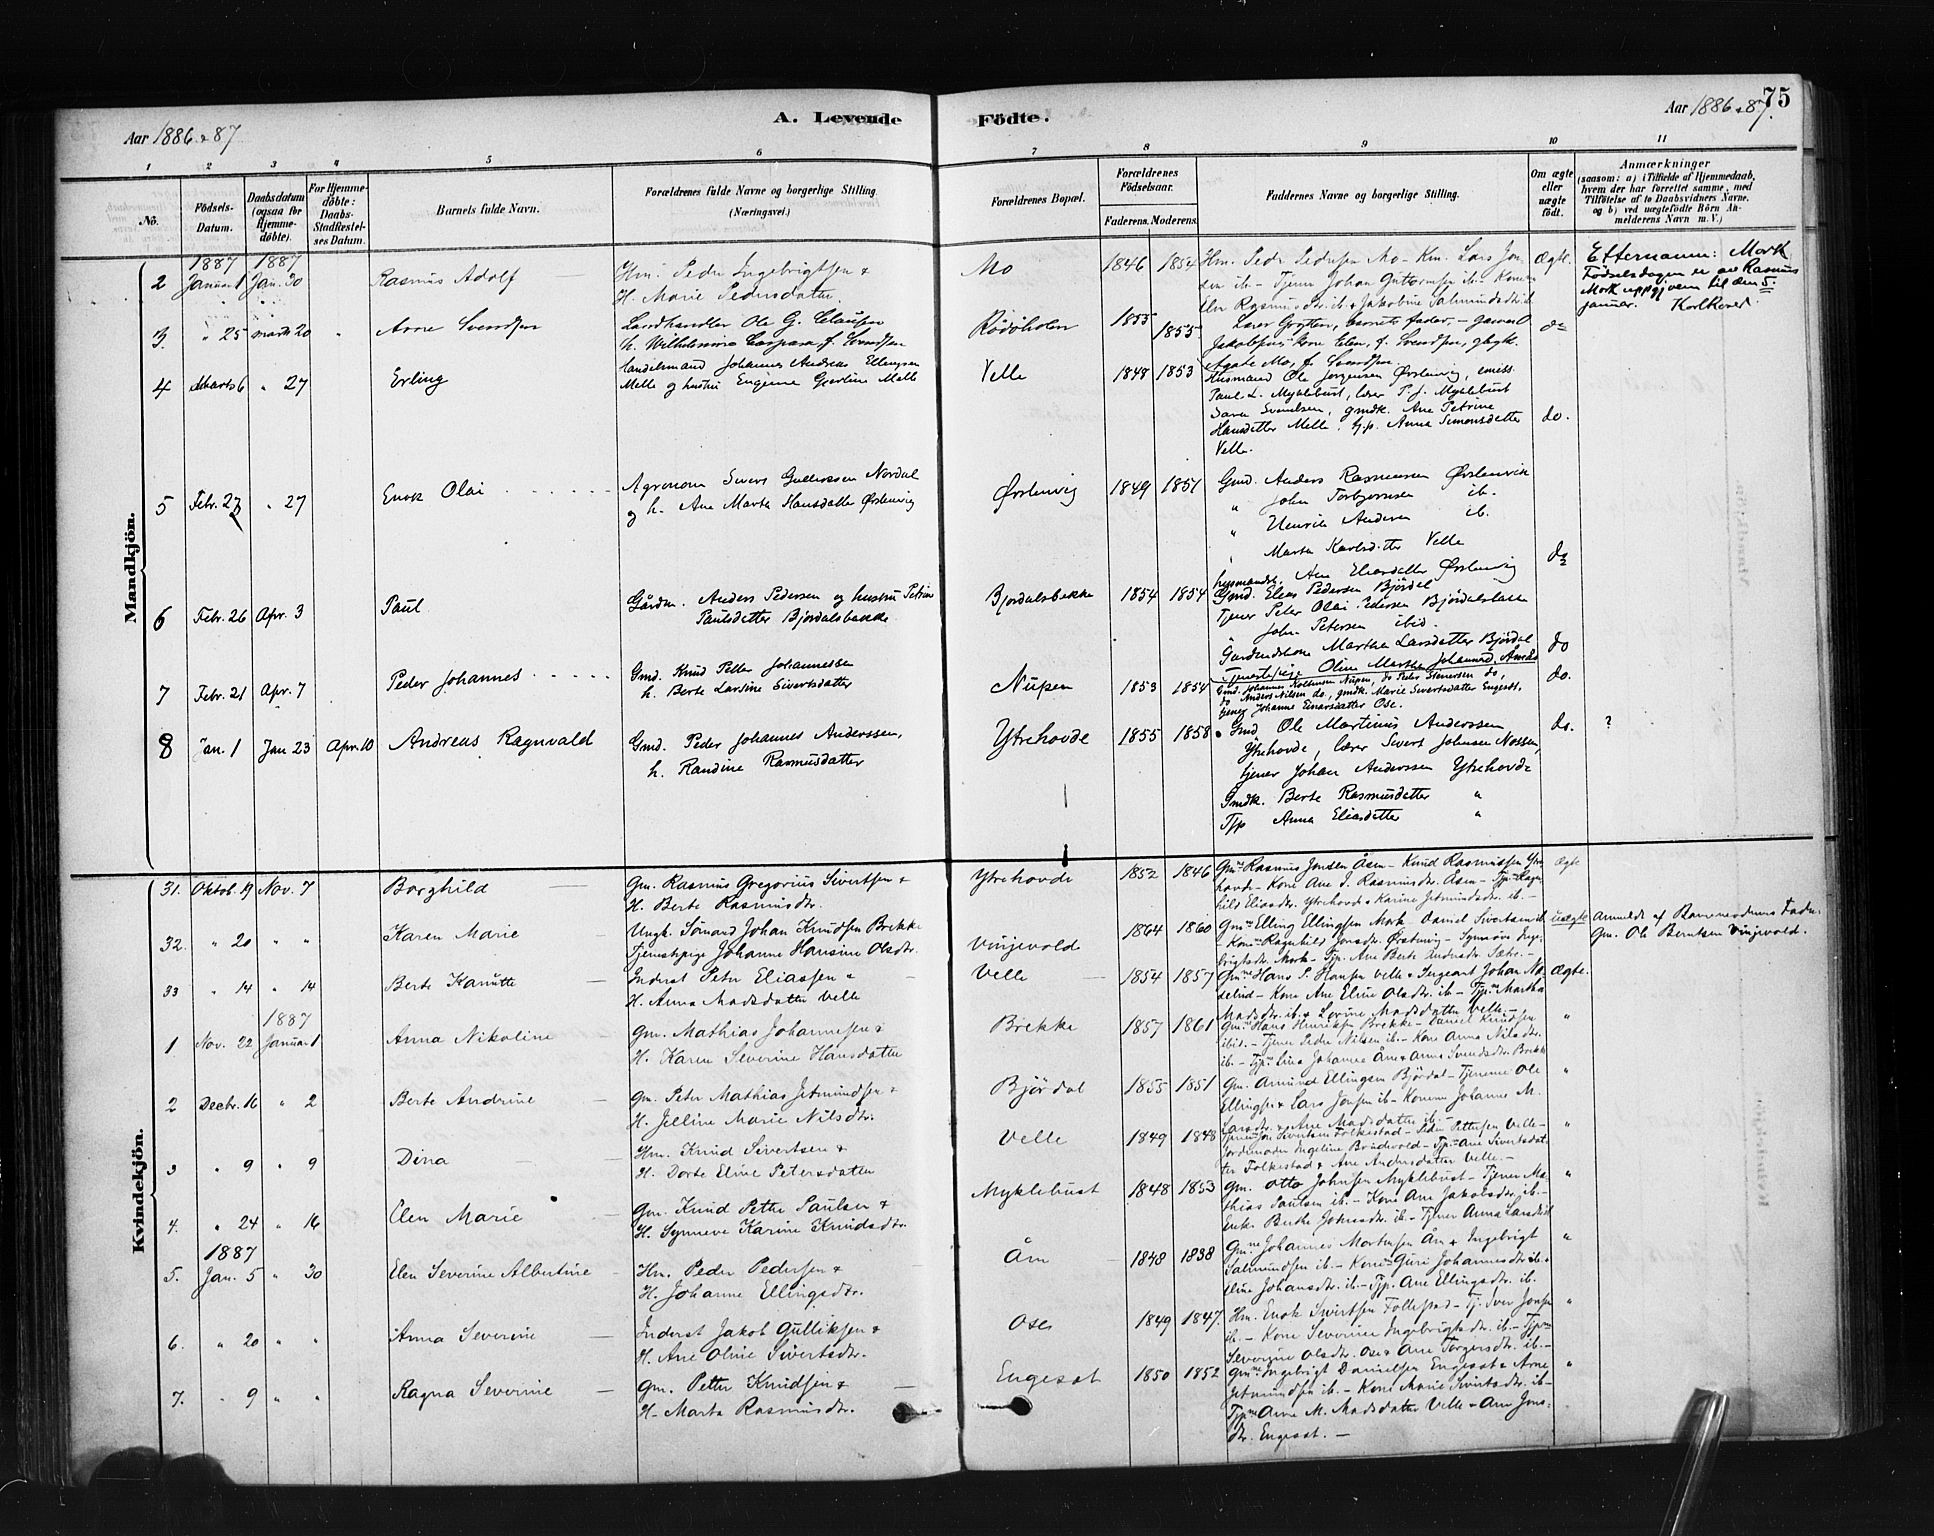 75
Aar 1886 & 87
A. Levende Födte.
Aar 1886 & 87.
1 2 3 4 5 6 7 8 9 10 11
No.
Födsels-Datum.
Daabsdatum (ogsaa for Hjemme-döbte).
For Hjemme-döbte: Daabs-Stadfæstel-ses Datum.
Barnets fulde Navn.
Forældrenes fulde Navne og borgerlige Stilling. (Næringsvei.)
Forældrenes Bopæl.
Forældrenes Födselsaar.
Faderens. Moderens.
Faddernes Navne og borgerlige Stilling.
Om ægte eller uægte födt.
Anmærkninger
(saasom: a) i Tilfælde af Hjemmedaab, hvem der har forrettet samme, med Tilföielse af to Daabsvidners Navne. og b) ved uægtefödte Börn An-melderens Navn m. V.)
Mandkjön.
1887 1887
2 Januar 1 Jan. 30 Rasmus Adolf
Hm. Peder Ingebrigtsen &
H. Marie Pedersdatter.
Mo 1846 1854
Hm. Peder Pedersen Mo - Km. Lars Jon-
sen ib - Tjener Johan Guttormsen ib - Konerne
Elen Rasmusdtr. ib & Jakobine Salmundsdtr ib
Ægte.
Efternavn: Mork
Födselsdagen er av Rasmus
Mork uppgj vera til den 5.
januar.
3. " 25 Marts 20 " Arne Svendsen
Landhandler Ole G. Clausen
h. Wilhelmine Caspara f. Svendsen
Rödöholm 1855 1855.
Agate Mo, f. Svendsen.
do
4 Marts 6 " 27 Erling
Handelsmand Johannes Andreas Ellingsen
Melle og hustru Eugenie Gjertine Melle
Velle 1848 1853
Husmand Ole Jørgensen Ørstenvig, emiss.
Paul L. Myklebust, lærer P. J. Myklebust
Sara Svendsen, gmdk. Ane Petrine
Hansdatter Melle. tjp. Anna Simonsdatter
Velle.
do.
5 Febr. 27 " 27 Enok Olai
Agronom Sivert Gulleksen Nordal
og h. Ane Marta Hansdatter Ørstenvig
Ørstenvig 1849 1851
Gmd. Anders Rasmussen Ørstenvik
" John Torbjørnsen ib.
" Henrik Andersen ib.
" Marta Karlsdatter Velle
husmandsk. Ane Eliasdatter Ørstenvig
do
6 Febr. 26 Apr. 3 Paul
Gårdm. Anders Pedersen og hustru Petrine
Paulsdatter Bjørdalsbakke
Bjørdalsbakke 1854 1854
Gmd. Elias Pedersen Bjørdal
Tjener Peter Olai Pedersen Bjørdalsbakke
John Petersen ibid.
Gardmdskone Martha Larsdatter Bjørdal
Tjenestepige Oline Martha Johannesd. Åmdal
do
7 Febr. 21 Apr. 7 Peder Johannes
Gmd. Knud Petter Johannessen
h. Berte Larsine Sivertsdatter
Nupen 1853 1854
do Anders Nilsen do., gmdk. Marie Sivertsdatter Engeset,
tjener Johanne Einarsdatter Ose.
do.
8 Jan. 1 Jan 23 Apr. 10 Andreas Ragnvald
Gmd. Peder Johannes Anderssen,
h. Randine Rasmusdatter
Ytrehovde 1855 1858
Gmd Ole Martinus Anderssen
Ytrehovde, lærer Sivert Johnsen Nossen,
tjener Johan Anderssen Ytrehovde
Gmdk. Berte Rasmusdatter "
Tjp Anna Eliasdatter "
do. ?
Kvindekjön.
31. Oktob. 19 Nov. 7 Borghild
Gm. Rasmus Gregorius Sivertsen &
H. Berte Rasmusdtr.
Ytrehovde 1852 1846
Gmd Rasmus Jonsen Åsen - Knud Rasmussen Ytre
hovde - Kone Ane J. Rasmusdtr. Åsen - Tjp. Ragn
hild Eliasdtr. Ytrehovde & Karine Jetmundsdtr. ib. -
Ægte
32. " 20 " " Karen Marie
Ungk. Sömand Johan Knudsen Brekke
Tjenestepige Johanne Hansine Olsdtr.
Vinjevold 1864 1860
Gmd Elling Ellingsen Mork Daniel Sivertsen ib
- Kone Ragnhild Jonsdtr. Ørstenvig - Synnøve Inge-
brigtsdtr. Mork - Tjp. Ane Berte Andersdtr. Sætre -
uægte
Anmeldt af Barnemoderens Fader
Gm. Ole Berntsen Vinjevold.
33 " 14 " 14 Berte Kanutte
Inderst Peter Eliassen &
H. Anna Madsdatter Velle
Velle 1854 1857
Gmd Hans P. Hansen Velle & Sergeant Johan No-
selid - Kone Ane Eline Olsdtr. ib - Tjp. Martha
Madsdtr. ib & Lovine Madsdatter Velle. -
Ægte.
1887
1 Nov. 22 Januar 1 Anna Nikoline
Gm. Mathias Johannesen &
H. Karen Severine Hansdatter
Brekke 1857 1861
Gmd Hans Henriksen Brekke - Daniel Knudsen
ibid. - Tjener Peder Nilsen ib - Kone Anna Nilsdtr.
ib. - Tjp. Lina Johannes Åm & Anna Svendsdtr. Brekke
"
2 Decbr. 16 " 2 Berte Andrine
Gm. Peter Mathias Jetmundsen &
H. Jelline Marie Nilsdtr.
Björdal 1855 1851
Gm. Amund Ellingsen Björdal - Tjenerne Ole
Ellingsen & Lars Jonsen ib - Konerne Johanne M.
Larsdtr. & Ane Madsdatter ib. -
"
3 " 9 " 9 Dina
Hm. Knud Sivertsen &
H. Dorte Eline Petersdatter
Velle 1849 1848
Tjener Jon Sivertsen Folkestad - Peder Pettersen Velle -
Jordemoder Ingeline Brudevold - Tjp. Ane Sivertsdat-
ter Folkestad & Ane Andersdatter Velle. -
"
4. " 24 " 16 Elen Marie
Gm. Knud Petter Paulsen &
H. Synneve Karine Knudsdtr.
Myklebust 1848 1853
Gm. Otto Johnsen Myklebust - Tjener Ma-
thias Paulsen ib. - Kone Ane Jakobsdtr. ib. -
Enke Berthe Johnsdtr. ib - Tjener Anna Larsdtr. ib
"
1887
5. Jan. 5 " 30 Elen Severine Albertine
Hm. Peder Pedersen &
H. Johanne Ellingsdtr.
Åm 1848 1838
Gmd Johannes Mortensen Åm & Ingebrigt
Salmundsen ib. - Kone Guri Johannesdtr ib &
Eline Johansdtr. ib. - Tjp. Ane Ellingsdtr. ib.
"
6. " 20 " " Anna Severine
Inderst Jakob Gulliksen &
H. Ane Oline Sivertsdtr.
Oses 1849 1847.
Hm. Enok Sivertsen Follestad - Tj. Iver Jonsen
ib. - Kone Severine Ingebrigtsdtr. ib. - Tjp.
Severine Olsdtr. Ose & Ane Torgersdtr. ib. -
"
7. " 9 " " Ragna Severine
Gm. Petter Knudsen &
H. Marta Rasmusdtr.
Engeset 1850 1852
Gmd Ingebrigt Danielsen Engeset & Arne
Jetmundsen ib. - Kone Marie Sivertsdtr. ib -
Tjp. Anne M. Madsdatter Velle & Ane Jons-
dtr. Engeset. -
"